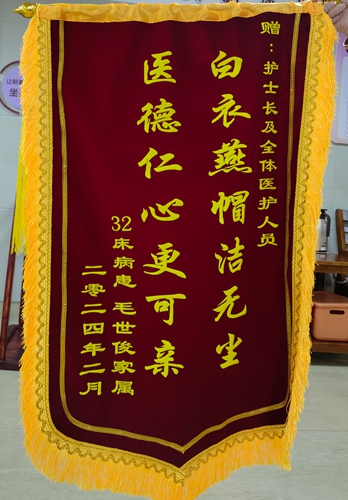 赠：护士长及全体医护人员
白衣燕帽洁无尘
医德仁心更可亲
32床病患 毛世俊家属
二零二四年二月